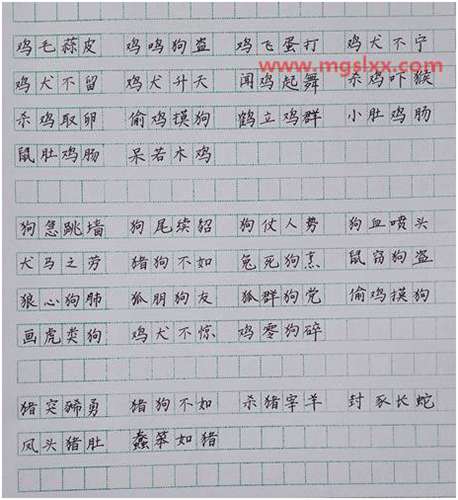 鸡毛蒜皮 鸡鸣狗盗 鸡飞蛋打 鸡犬不宁
www.mgslxx.com
鸡犬不留 鸡犬升天 闻鸡起舞 杀鸡吓猴
杀鸡取卵 偷鸡摸狗 鹤立鸡群 小肚鸡肠
鼠肚鸡肠 呆若木鸡
狗急跳墙 狗尾续貂 狗仗人势 狗血喷头
犬马之劳 猪狗不如 兔死狗烹 鼠窃狗盗
狼心狗肺 狐朋狗友 狐群狗党 偷鸡摸狗
画虎类狗 鸡犬不惊 鸡零狗碎
猪突豨勇 猪狗不如 杀猪宰羊 封豕长蛇
凤头猪肚 蠢笨如猪